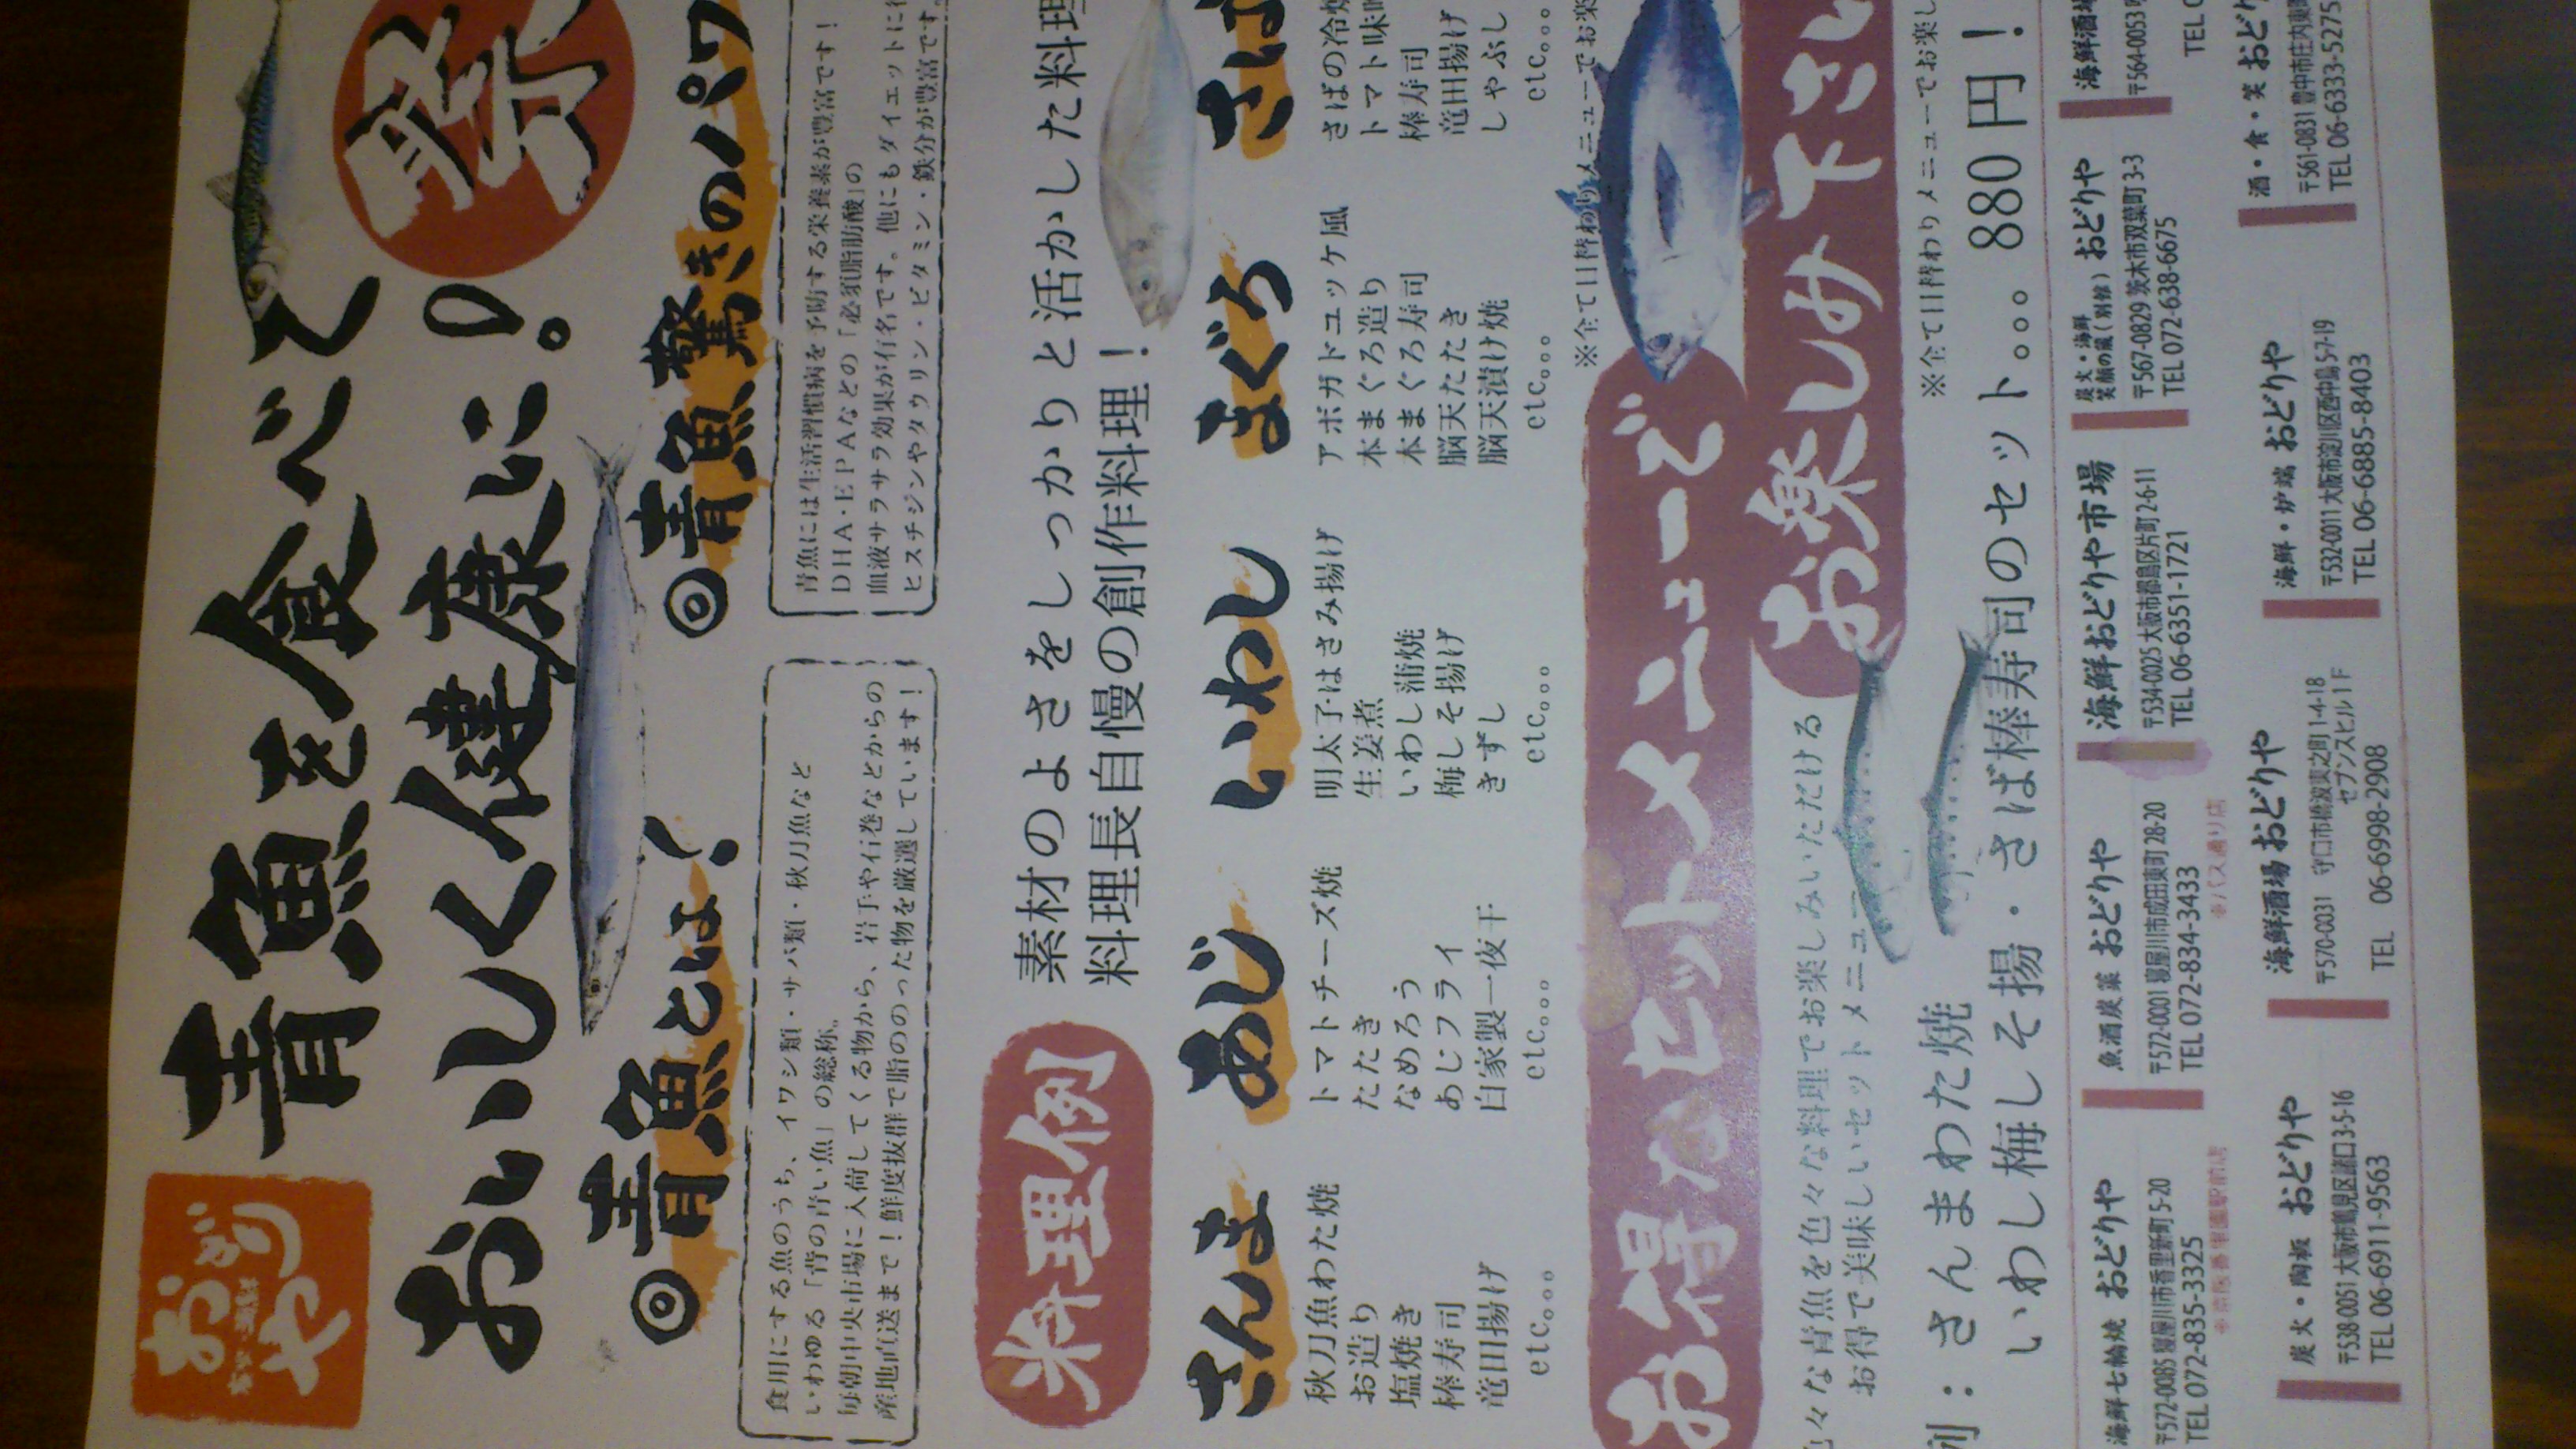 おどりや
青魚を食べて
おいしく健康に!。
祭
◎青魚とは!
食用にする魚のうち、イワシ類・サバ類・秋刀魚など
いわゆる「背の青い魚」の総称。
毎朝中央市場に入荷してくる物から、岩手や石巻などからの
産地直送まで!鮮度抜群で脂ののった物を厳選しています!
◎青魚驚きのパワ
青魚には生活習慣病を予防する栄養素が豊富です!
DHA・EPAなどの「必須脂肪酸」の
血液サラサラ効果が有名です。他にもダイエットに
ヒスチジンやタウリン・ビタミン・鉄分が豊富です。
料理例
素材のよさをしっかりと活かした料理
料理長自慢の創作料理!
さんま
秋刀魚わた焼
お造り
塩焼き
棒寿司
竜田揚げ
etc。。。
あじ
トマトチーズ焼
たたき
なめろう
あじフライ
自家製一夜干
etc。。。
いわし
明太子はさみ揚げ
生姜煮
いわし蒲焼
梅しそ揚げ
きずし
etc。。。
まぐろ
アボガドユッケ風
本まぐろ造り
本まぐろ寿司
脳天たたき
脳天漬け焼
etc。。。
さば
さばの冷燻
トマト味噌
棒寿司
竜田揚げ
しゃぶし
etc。。。
※全て日替わりメニューでお楽
お得なセットメニューで
お楽しみ下さい
色々な青魚を色々な料理でお楽しみいただける
お得で美味しいセットメニュー
※全て日替わりメニューでお楽し
例:さんまわた焼
いわし梅しそ揚・さば棒寿司のセット。。。880円!
海鮮七輪焼 おどりや
〒572-0085 寝屋川市香里新町 5-20
TEL 072-835-3325
※京阪香里園駅前店
魚酒炭菜 おどりや
〒572-0001 寝屋川市成田東町 28-20
TEL 072-834-3433
※バス通り店
海鮮おどりや市場
〒534-0025 大阪市都島区片町 2-6-11
TEL 06-6351-1721
炭火・海鮮
笑顔の蔵(別館) おどりや
〒567-0829 茨木市双葉町 3-3
TEL 072-638-6675
海鮮酒場
〒564-0053
TEL 0
炭火・陶板 おどりや
〒538-0051 大阪市鶴見区諸口 3-5-16
TEL 06-6911-9563
海鮮酒場 おどりや
〒570-0031 守口市橋波東之町 1-4-18
セブンスビル1F
TEL 06-6998-2908
海鮮・炉端 おどりや
〒532-0011 大阪市淀川区西中島 5-7-19
TEL 06-6885-8403
酒・食・笑 おどり
〒561-0831 豊中市庄内東町
TEL 06-6333-5275